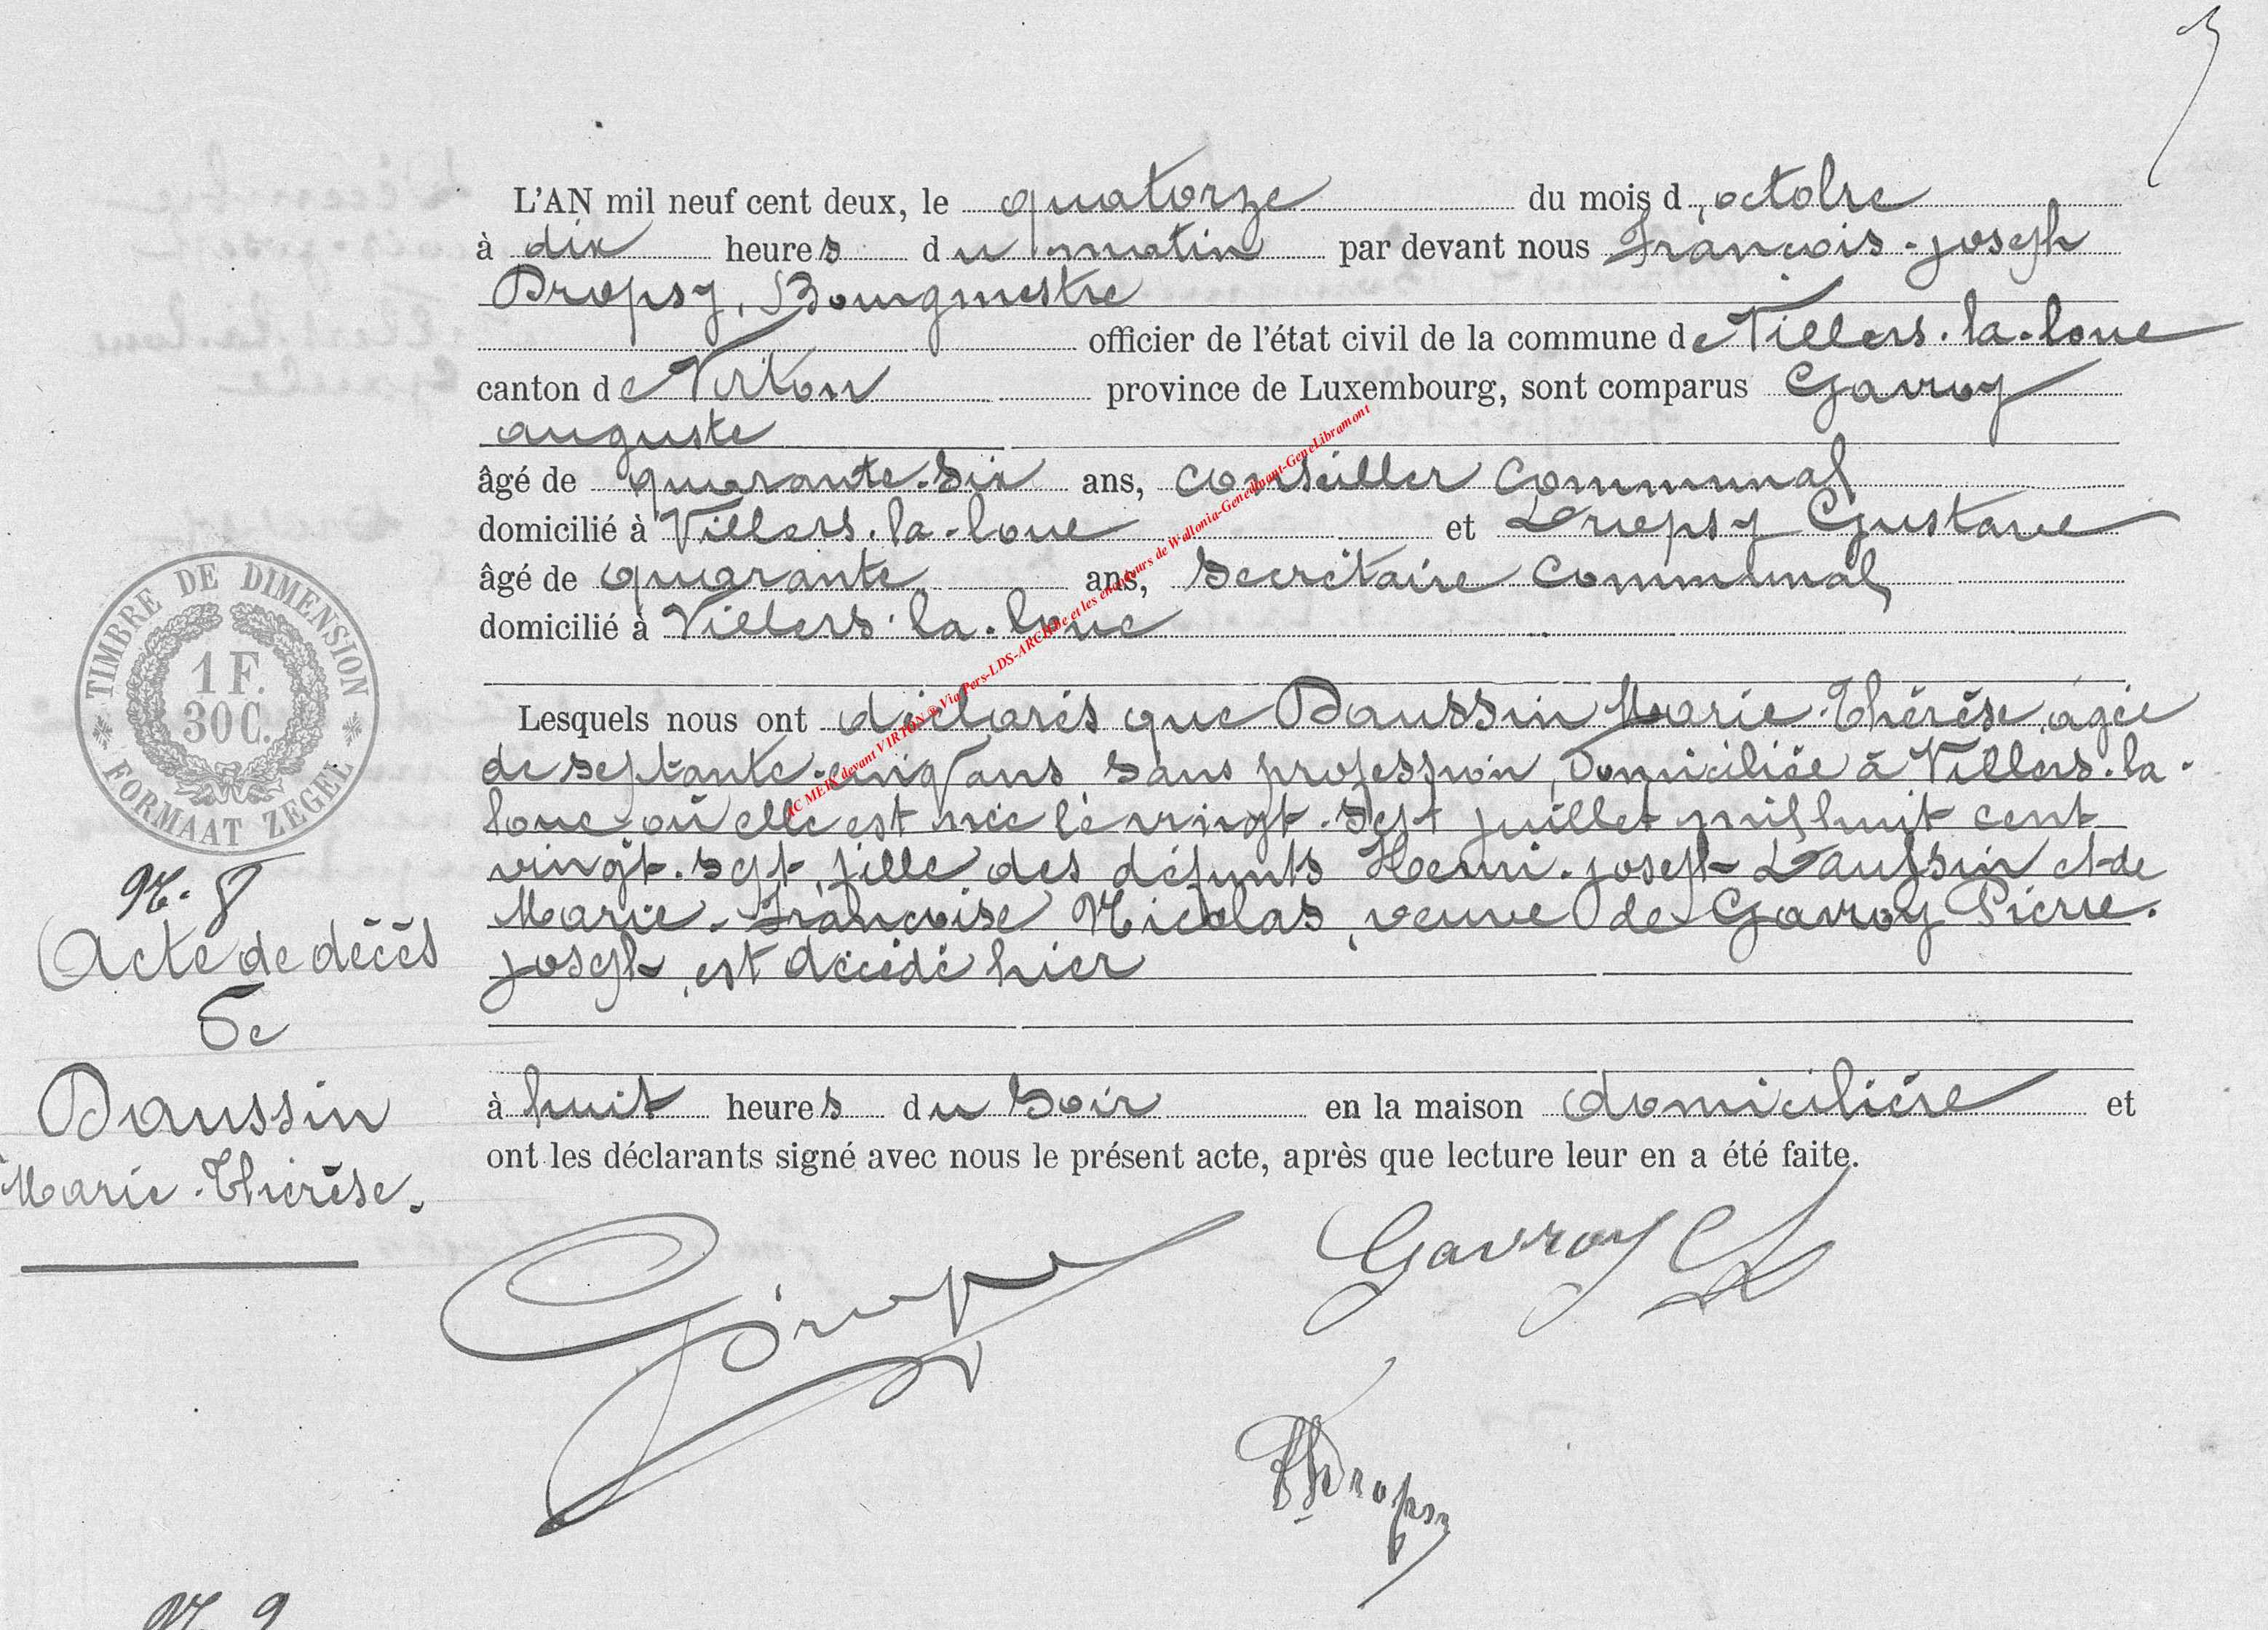 3
L'AN mil neuf cent deux, le quatorze du mois d'octobre
à dix heures du matin par devant nous François-joseph
Dropsy, Bourgmestre
officier de l'état civil de la commune de Villers-la-loue
canton de Virton province de Luxembourg, sont comparus Gavroy
auguste
âgé de quarante-six ans, conseiller communal
domicilié à Villers-la-loue et Dropsy Gustave
âgé de quarante ans, secrétaire communal
domicilié à Villers-la-loue
Lesquels nous ont déclarés que Daussin Marie-Thérèse, agée
de septante-cinq ans, sans profession, domiciliée à Villers-la-
loue où elle est née le vingt-sept juillet mil huit cent
vingt-sept, fille des défunts Henri-joseph Daussin et de
Marie-Françoise Nicolas, veuve de Gavroy Pierre-
joseph, est décédé hier
à huit heures du soir en la maison domicilière et
ont les déclarants signé avec nous le présent acte, après que lecture leur en a été faite.
TIMBRE DE DIMENSION
1 F.
30 C.
FORMAAT ZEGEL
N. 8
Acte de décès
de
Daussin
Marie-Thérèse.
Gavroy
Dropsy
N. 9
AC MEIX devant VIRTON ® Via Pers-LDS-ARCH.be et les encodeurs de Wallonia-Genedinant-GeneLibramont